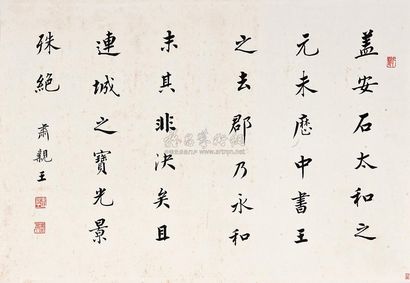 盖安石太和之
元未歷中書王
之去郡乃永和
末其非決矣且
連城之寶光景
殊絕
肅親王